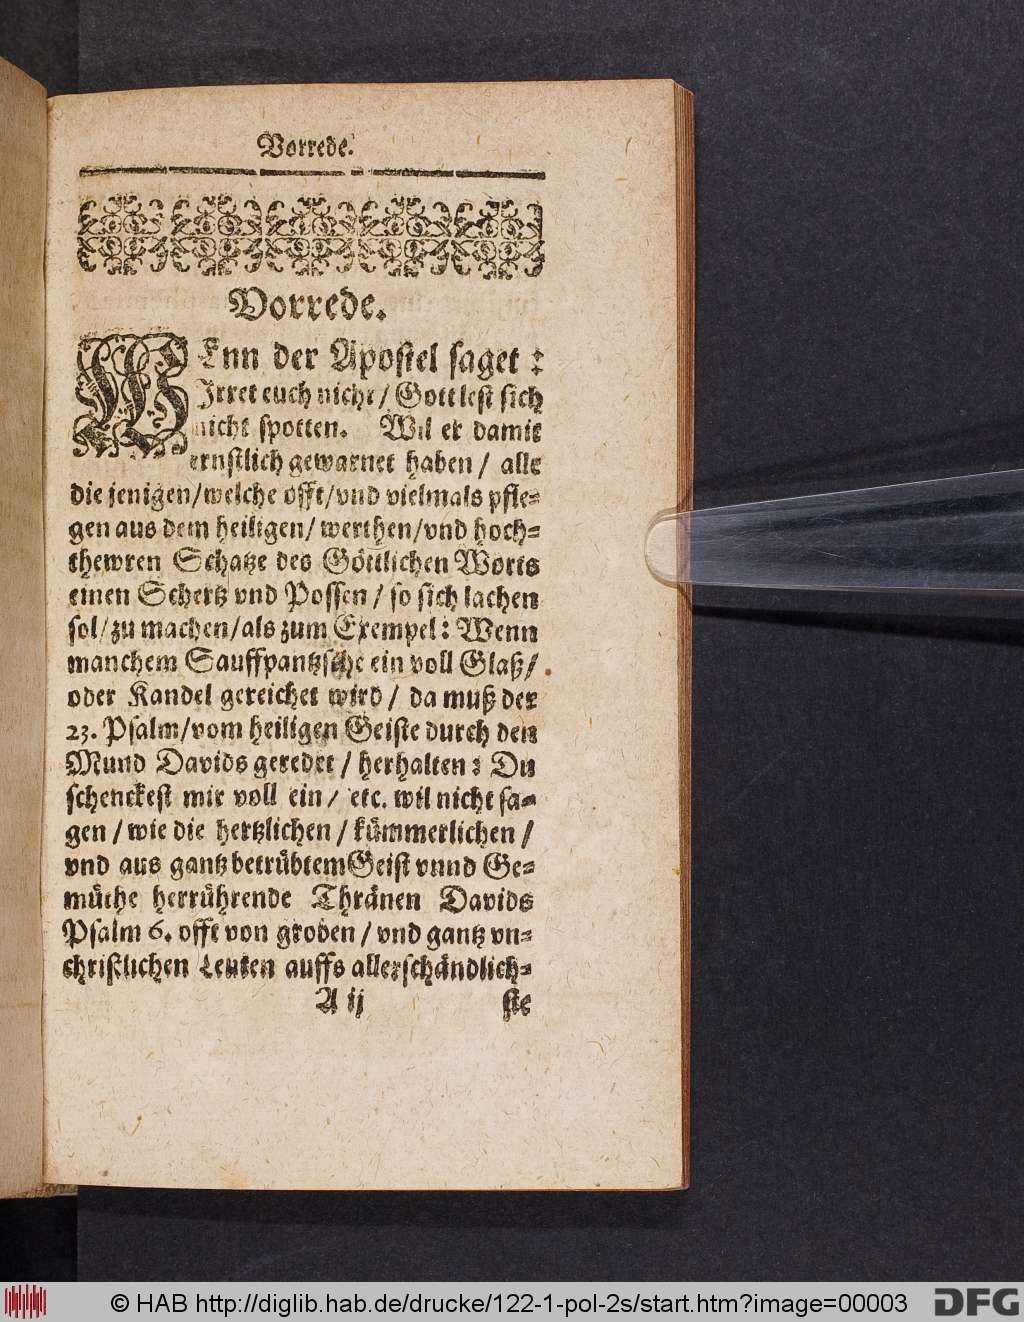 Vorrede.
Vorrede.
WEnn der Apostel saget:
Irret euch nicht / Gott lest sich
nicht spotten. Wil er damit
ernstlich gewarnet haben / alle
die jenigen/welche offt/vnd vielmals pfle-
gen aus dem heiligen/ werthen/vnd hoch-
thewren Schatze des Göttlichen Worts
einen Schertz vnd Possen / so sich lachen
sol/zu machen/als zum Exempel: Wenn
manchem Sauffpantzsche ein voll Glaß/
oder Kandel gereichet wird / da muß der
23. Psalm/vom heiligen Geiste durch den
Mund Davids geredet / herhalten: Du
schenckest mir voll ein / etc. wil nicht sa-
gen / wie die hertzlichen / kümmerlichen /
vnd aus gantz betrübtem Geist vnnd Ge-
müthe herrührende Thränen Davids
Psalm 6. offt von groben / vnd gantz vn-
christlichen Leuten auffs allerschändlich-
A ij ste
© HAB http://diglib.hab.de/drucke/122-1-pol-2s/start.htm?image=00003 DFG